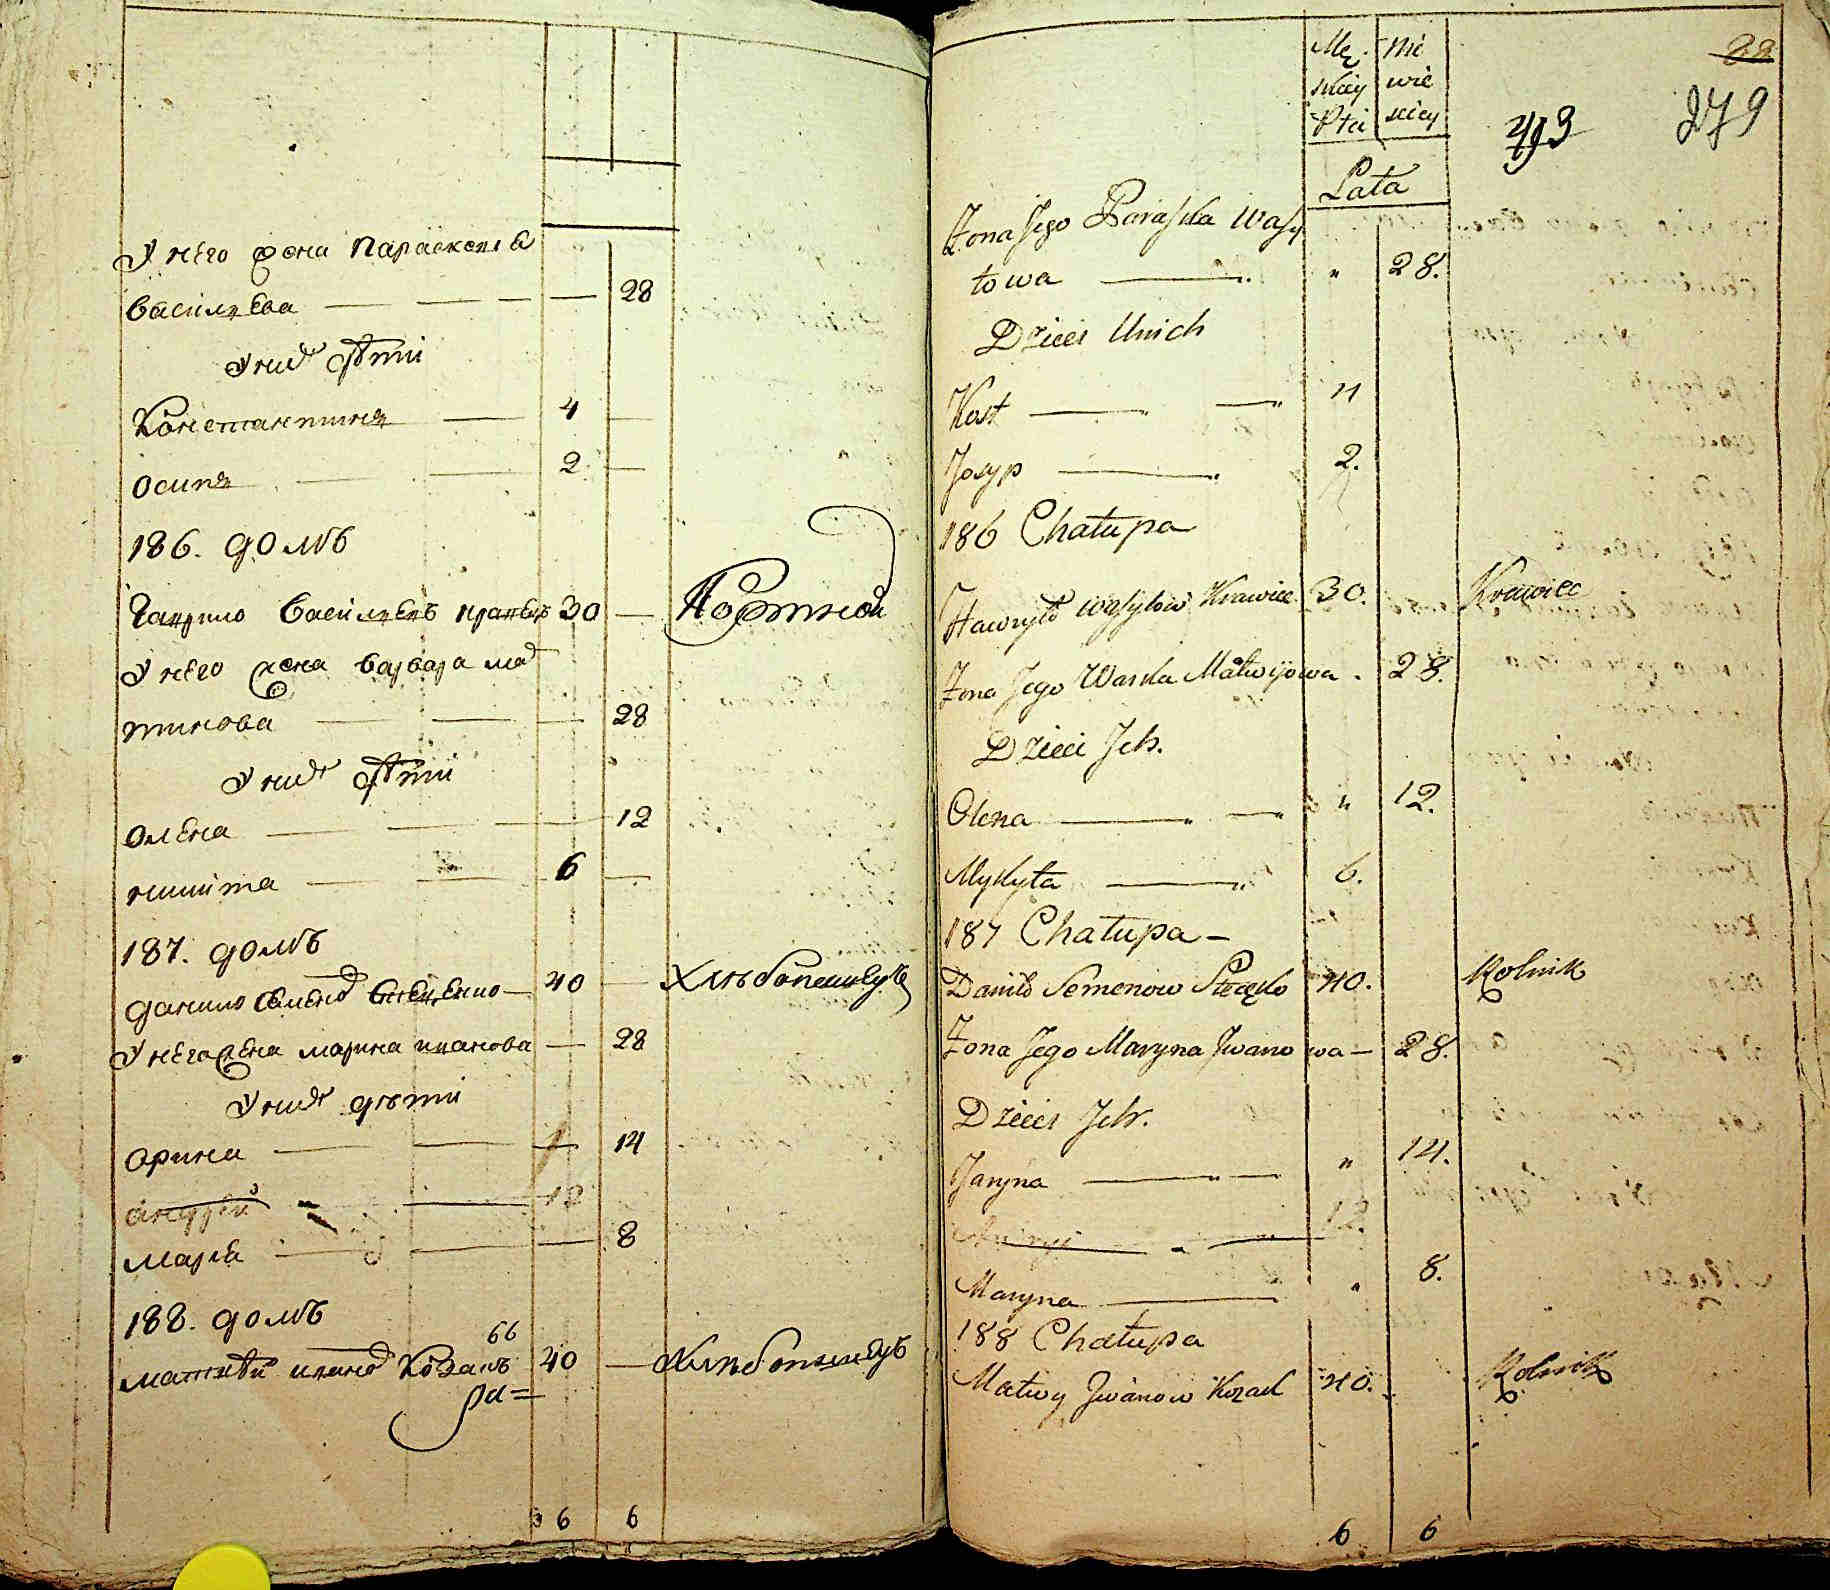 У него жена Параскева
Василѣева — — — — 28
У них дѣти
Константинъ — 4 —
Осипъ — 2 —
186. домъ
Гаврило Василѣевъ кравецъ 30 — Портной
У него жена Варвара Мат
винова — — — 28
У них дѣти
Олена — — — 12
Никита — — 6 —
187. домъ
Данило Семенов — 40 — Хлѣбопашецъ
У него жена Марина Иванова — 28
У них дѣти
Орина — — — 14
Андрѣй — — 12
Марія — — — 8
188. домъ
66
Матвѣй Иванов Козакъ 40 — Хлѣбопашецъ
6 6
Mę Nie
skiey wie
Płci sciey
Lata
88
493 279
Żona Jego Paraska Wasy
lowa — " 28.
Dzieci Unich
Kost — — 4
Josyp — 2.
186 Chałupa
Hawryło Wasylow Krawiec 30. Krawiec
Żona Jego Warka Matwijowa . 28.
Dzieci Ich.
Olena — — " 12.
Mykyta — 6.
187 Chałupa —
Daniło Semenow 40. Rolnik
Żona Jego Maryna Jwanowa — 28.
Dzieci Ich.
Jaryna — — " 14.
Andryj — 12.
Maryna — " 8.
188 Chałupa
Matwy Jwanow Kozak 40. Rolnik
6 6